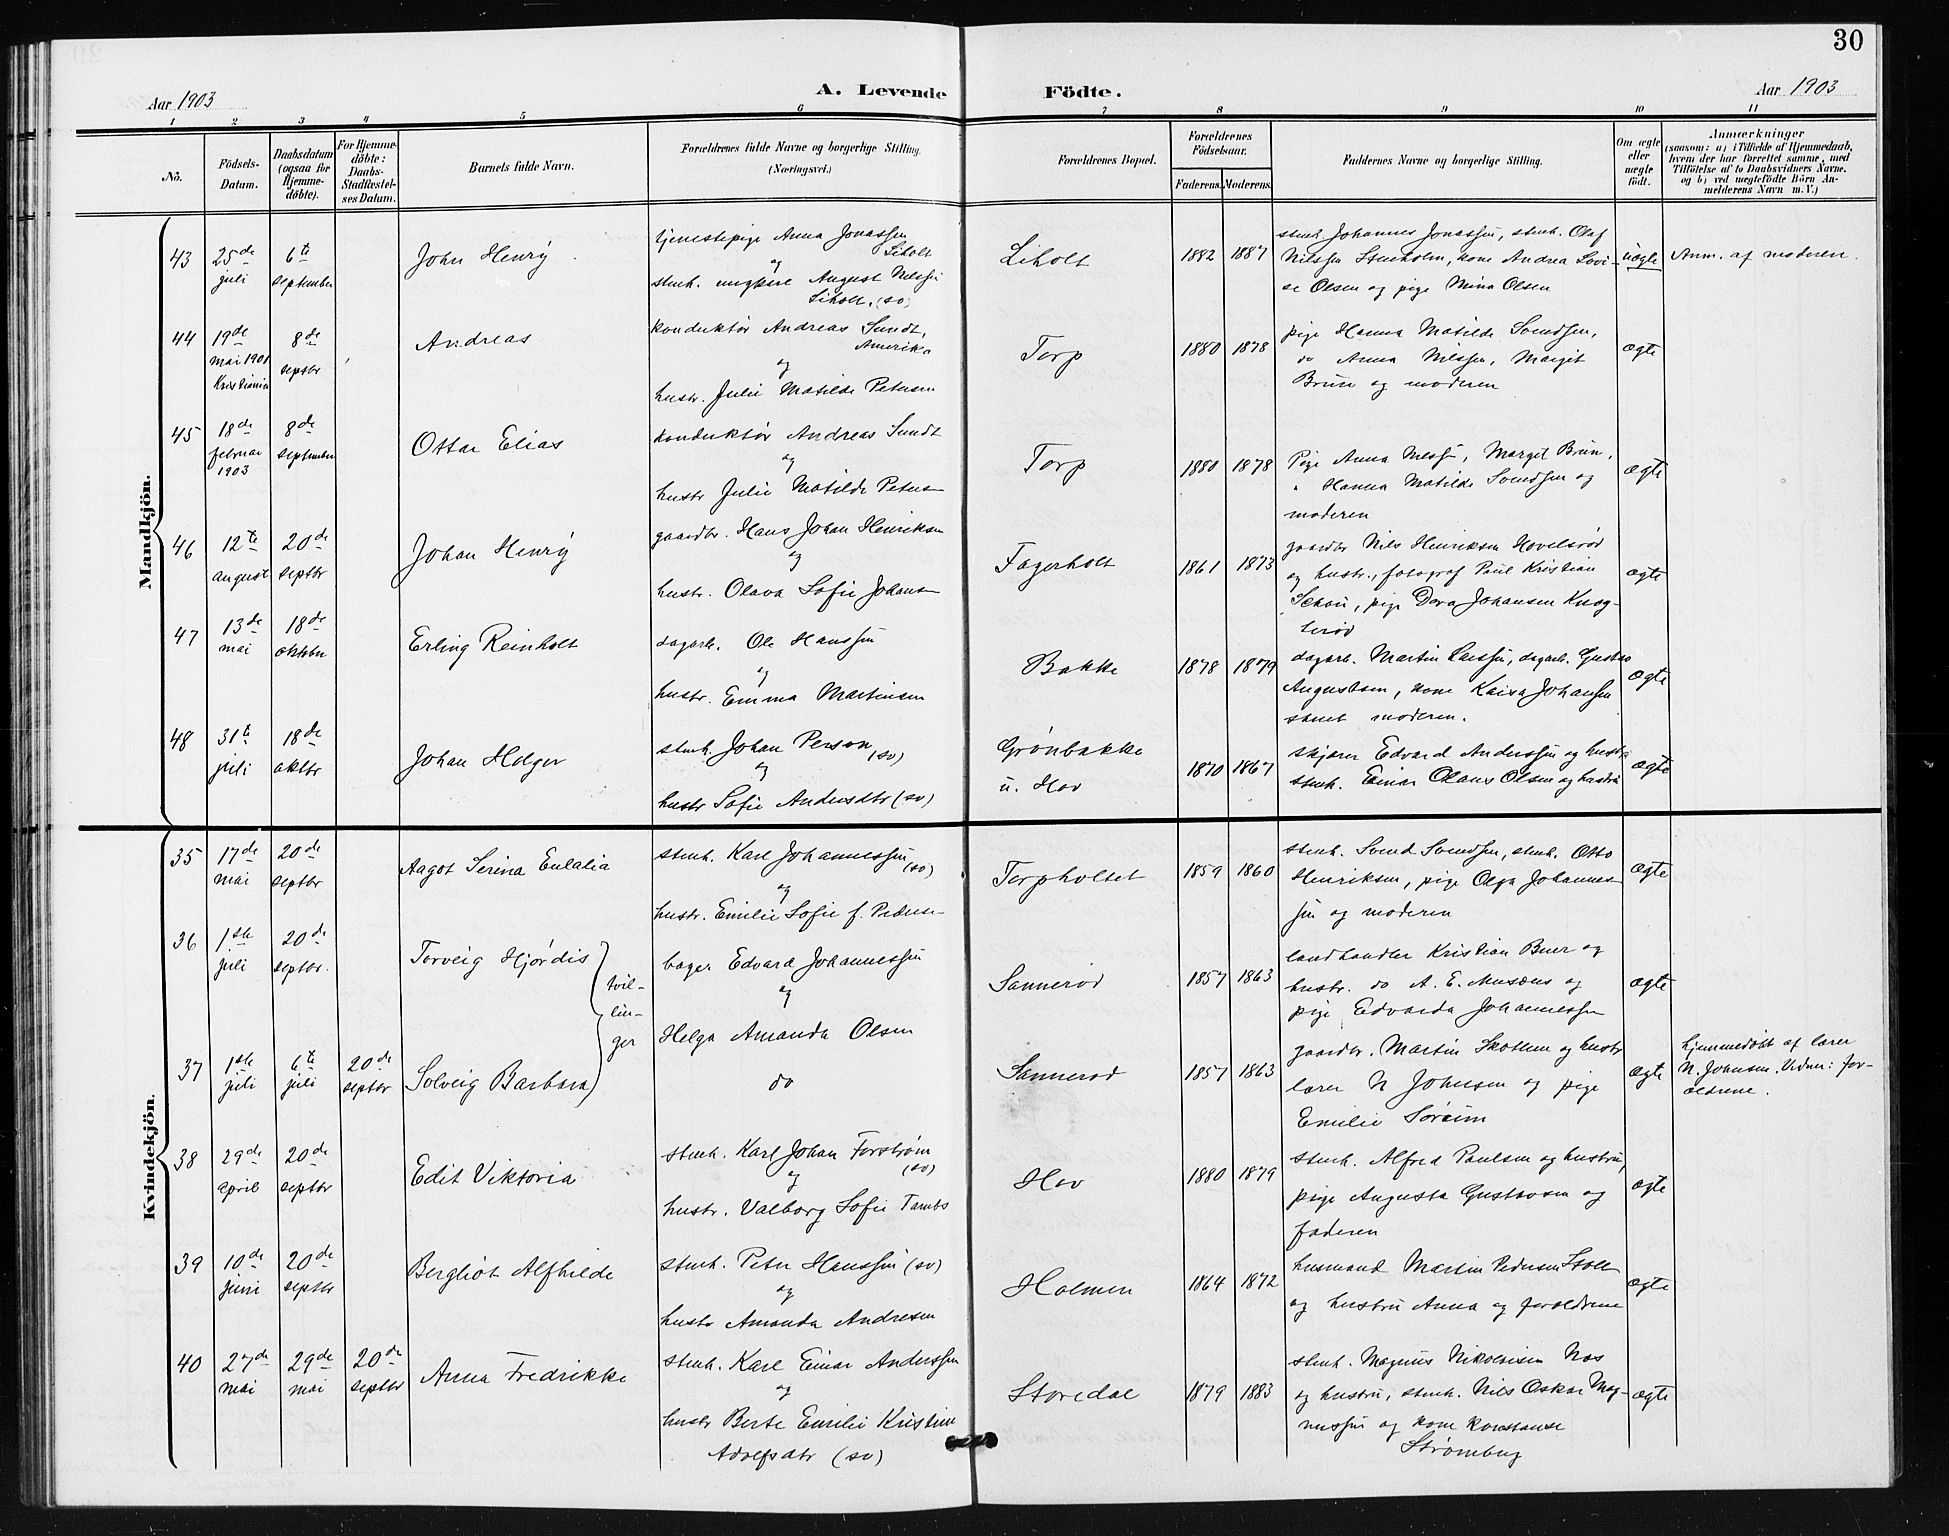 30
Aar 1903
A. Levende
Födte.
Aar 1903
1 2 3 4 5 6 7 8 9 10 11
No.
Födsels-
Datum.
Daabsdatum
(ogsaa for
Hjemme-
döbte).
For Hjemme-
döbte:
Daabs-
Stadfæstel-
ses Datum.
Barnets fulde Navn.
Forældrenes fulde Navne og borgerlige Stilling.
(Næringsvei.)
Forældrenes Bopæl.
Forældrenes
Födselsaar.
Faderens. Moderens.
Faddernes Navne og borgerlige Stilling.
Om ægte
eller
uægte
født.
Anmærkninger
(saasom: a) i Tilfælde af Hjemmedaab,
hvem der har forrettet samme, med
Tilföielse af to Daabsvidners Navne.
og b) ved uægtefödte Börn An-
melderens Navn m. V.)
Mandkjön.
43
25de
juli
6te
september
John Henrÿ
tjenestepige Anna Jonassen
Liholt
og
stenh. ungkare August Nilssen
Liholt. (sv)
Liholt
1882 1887
stenh. Johannes Jonassen, stenh. Olaf
Nilssen Stenholm, kone Andrea Lovi-
se Olsen og pige Mina Olsen
uægte
Anm. af moderen.
44
19de
mai 1901
Kristiania
8de
septbr
Andreas
konduktør Andreas Sundt,
Amerika
og
hustr. Julie Matilde Petersen
Torp
1880 1878
pige Hanna Matilde Svendsen,
do Anna Nilssen, Margit
Brun og moderen
ægte
45
18de
februar
1903
8de
september
Ottar Elias
konduktør Andreas Sundt
og
hustr Julie Matilde Petersen
Torp
1880 1878
Pige Anna Nilssen, Margit Brun,
" Hanna Matilde Svendsen og
moderen
ægte
46
12te
august
20de
septbr
Johan Henrÿ
gaardbr. Hans Johan Henriksen
og
hustr. Olava Sofie Johansen
Fagerholt
1861 1873
gaardbr Nils Henriksen Hovelsrød
og hustr., fotograf Paul Kristian
Schou, pige Dora Johansen Knog-
lerød
ægte
47
13de
mai
18de
oktober
Erling Reinholt
dagarb. Ole Hanssen
og
hustr. Emma Martinsen
Bakke
1878 1879
dagarb. Martin Larssen, dagarb. Gustav
Augustsen, kone Kaisa Johansen
samt moderen.
ægte
48
31te
juli
18de
oktbr
Johan Holger
stenh. Johan Person (sv)
og
hustr Sofie Andersdtr (sv)
Grönbakke
u. Hov
1870 1867
skjærer Edvard Anderssen og hustru
stenh. Einar Olaus Olsen og hustru
ægte
Kvindekjön.
35
17de
mai
20de
septbr
Aagot Serina Eulalia
stenh. Karl Johannessen
(sv)
og
hustr. Emilie Sofie f. Pedersen
Torpholtet
1859 1860
stenh. Svend Svendsen, stenh. Otto
Henriksen, pige Olga Johannes-
sen og moderen
ægte
36
1ste
juli
20de
septbr.
Torveig Hjørdis
tvil-
lin-
ger
bager Edvard Johannessen
og
Helga Amanda Olsen
Sannerød
1857 1863
landhandler Kristian Buer og
hustr. do A. E. Musæus og
pige Edvarda Johannessen
ægte
37
1ste
juli
6te
juli
20de
septbr
Solveig Barbara
do
Sannerød
1857 1863
gaardbr. Martin Skotten og hustr
lærer N Johnsen og pige
Emilie Sørum
ægte
hjemmedøbt af lærer
N. Johnsen. Vidner: for-
ældrene.
38
29de
april
20de
septbr
Edit Viktoria
stenh. Karl Johan Forstrøm
(sv)
og
hustr. Valborg Sofie Tambs
Hov
1880 1879
stenh. Alfred Paulsen og hustru,
pige Augusta Gustavsen og
faderen
ægte
39
10de
juni
20de
septbr
Bergliot Alfhilde
stenh. Peter Hanssen (sv)
og
hustr Amanda Andresen
Holmen
1864 1872
husmand Martin Pedersen Stolt
og hustru Anna og forældrene
ægte
40
27de
mai
29de
mai
20de
septbr
Anna Fredrikke
stenh. Karl Einar Anderssen
og
hustr Berte Emilie Kristine
Adolfsdtr (sv)
Storedal
1879 1883
stenh. Magnus Nikolaisen Nas
og hustru, stenh. Nils Oskar Mag-
nussen og kone Konstanse
Strømberg
ægte